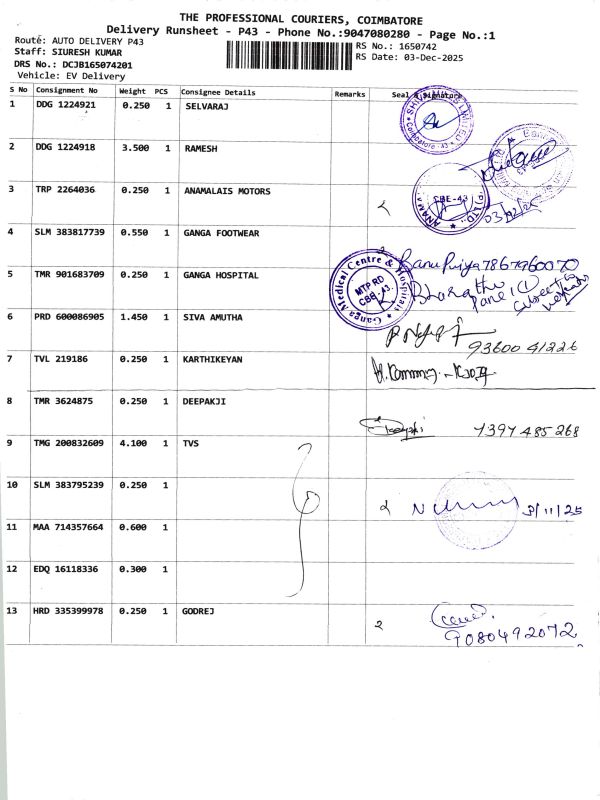 THE PROFESSIONAL COURIERS, COIMBATORE
Delivery Runsheet - P43 - Phone No.:9047080280 - Page No.:1
Route: AUTO DELIVERY P43
Staff: SIURESH KUMAR
DRS No.: DCJB165074201
Vehicle: EV Delivery
RS No.: 1650742
RS Date: 03-Dec-2025
S No Consignment No Weight PCS Consignee Details Remarks Seal & Signature
1 DDG 1224921 0.250 1 SELVARAJ
2 DDG 1224918 3.500 1 RAMESH
3 TRP 2264036 0.250 1 ANAMALAIS MOTORS
CBE-43
03/12/25
4 SLM 383817739 0.550 1 GANGA FOOTWEAR
Banu Priya 7867960070
5 TMR 901683709 0.250 1 GANGA HOSPITAL
Ganga Medical Centre & Hospitals
MTP RD
CBE-43
6 PRD 600086905 1.450 1 SIVA AMUTHA
93600 41226
7 TVL 219186 0.250 1 KARTHIKEYAN
8 TMR 3624875 0.250 1 DEEPAKJI
7397 485 268
9 TMG 200832609 4.100 1 TVS
10 SLM 383795239 0.250 1
3/11/25
11 MAA 714357664 0.600 1
12 EDQ 16118336 0.300 1
13 HRD 335399978 0.250 1 GODREJ
9080492072